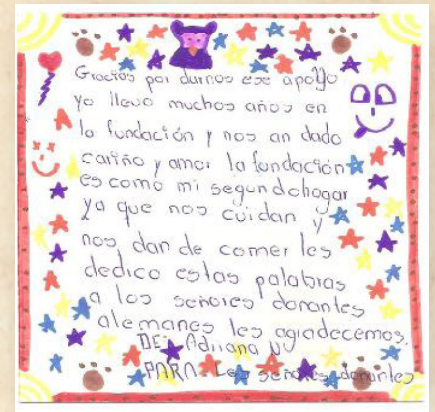 Gracias por darnos ese apollo
yo llevo muchos años en
la fundación y nos an dado
cariño y amor la fundación
es como mi segundo hogar
ya que nos cuidan y
nos dan de comer les
dedico estas palabras
a los señores donantes
alemanes les agradecemos.
DE: Adriana
PARA: Los señores donantes